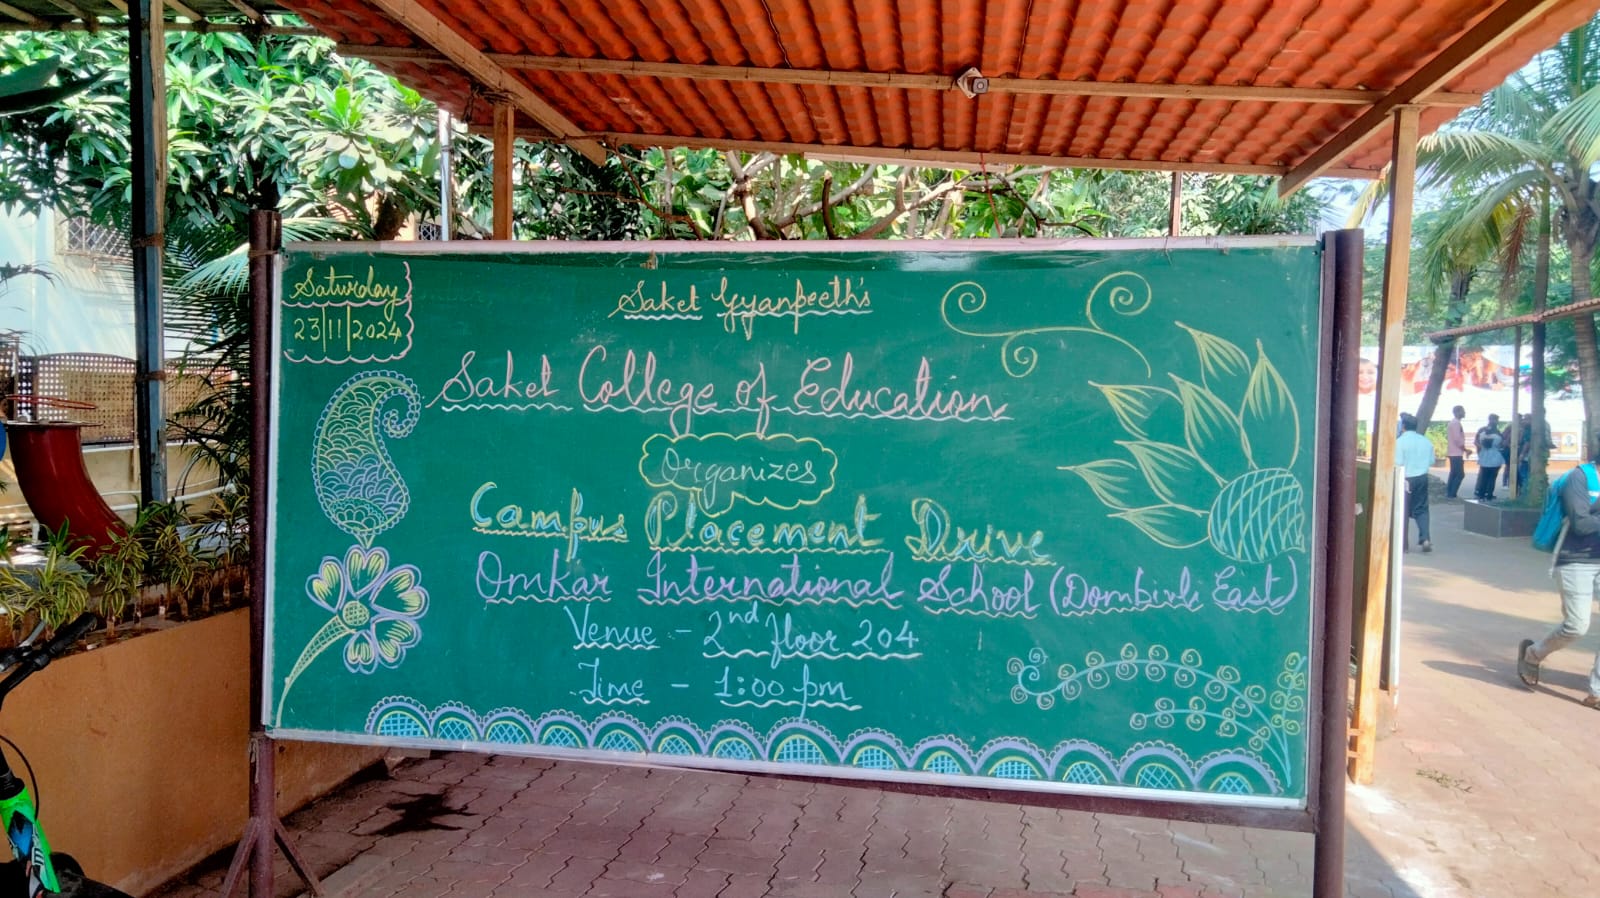 Saturday
23/11/2024
Saket Gyanpeeth's
Saket College of Education
Organizes
Campus Placement Drive
Omkar International School (Dombivli East)
Venue - 2nd floor 204
Time - 1:00 pm